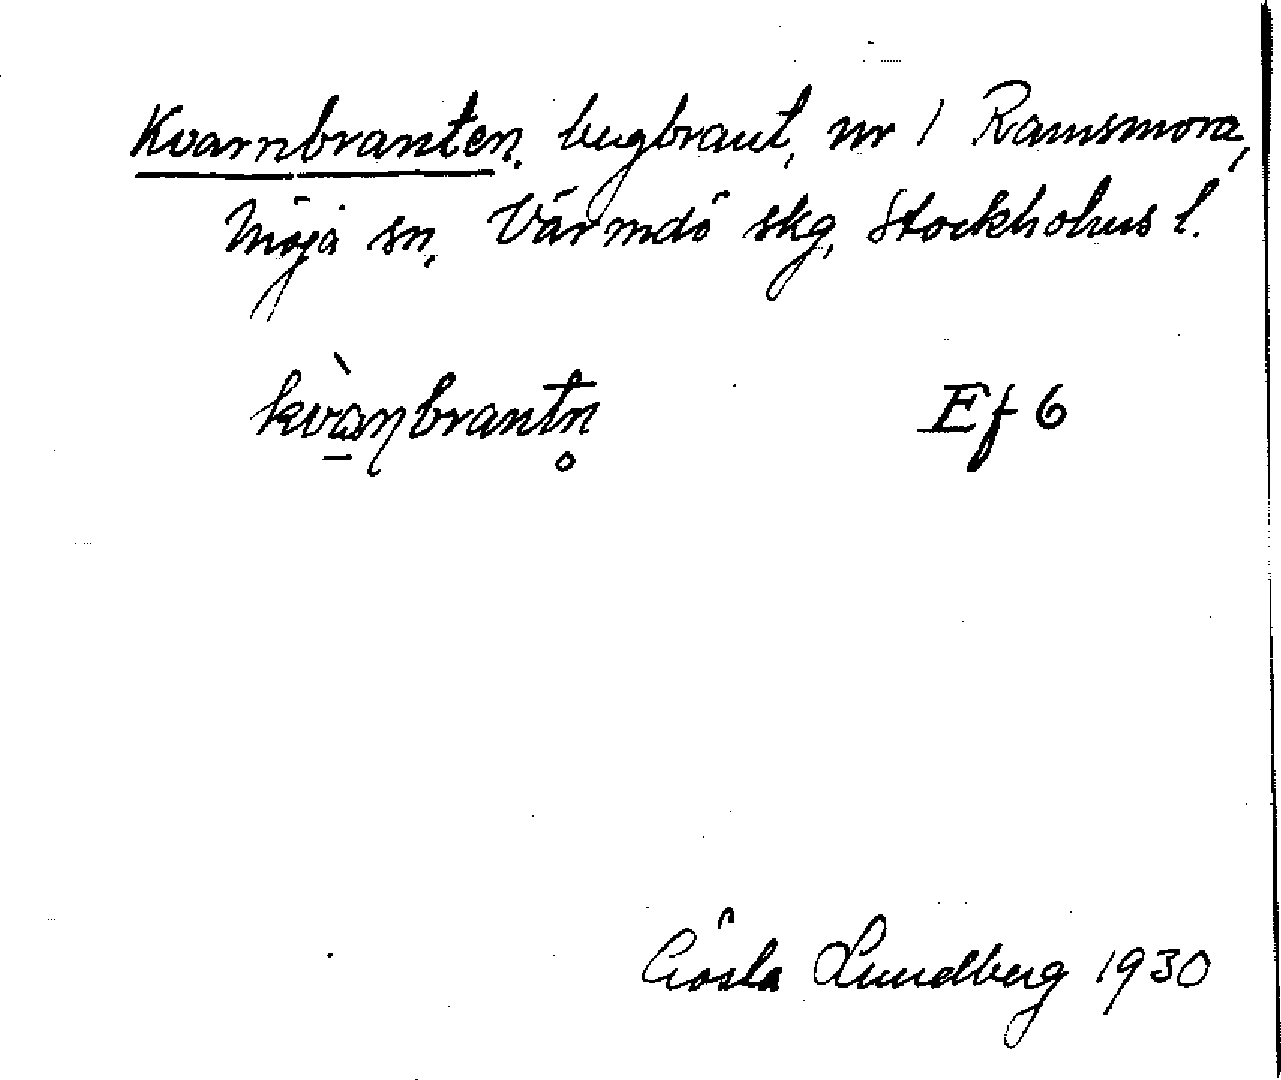 Kvarnbranten, bergbrant, nr 1 Ramsmora,
Möja sn, Värmdö skg, Stockholms l.
kvàṉbrantn̥ Ef 6
Gösta Lundberg 1930